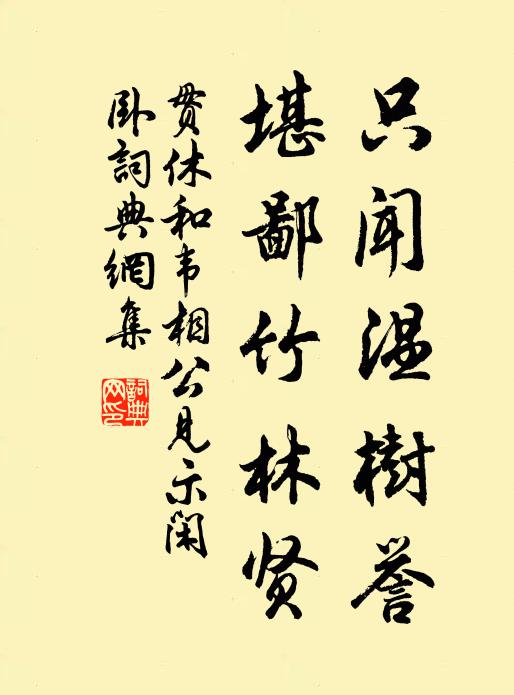 只闻温樹誉
堪鄙竹林贤
贯休和韦相公见示闲
卧詞典網集
詞典
网印